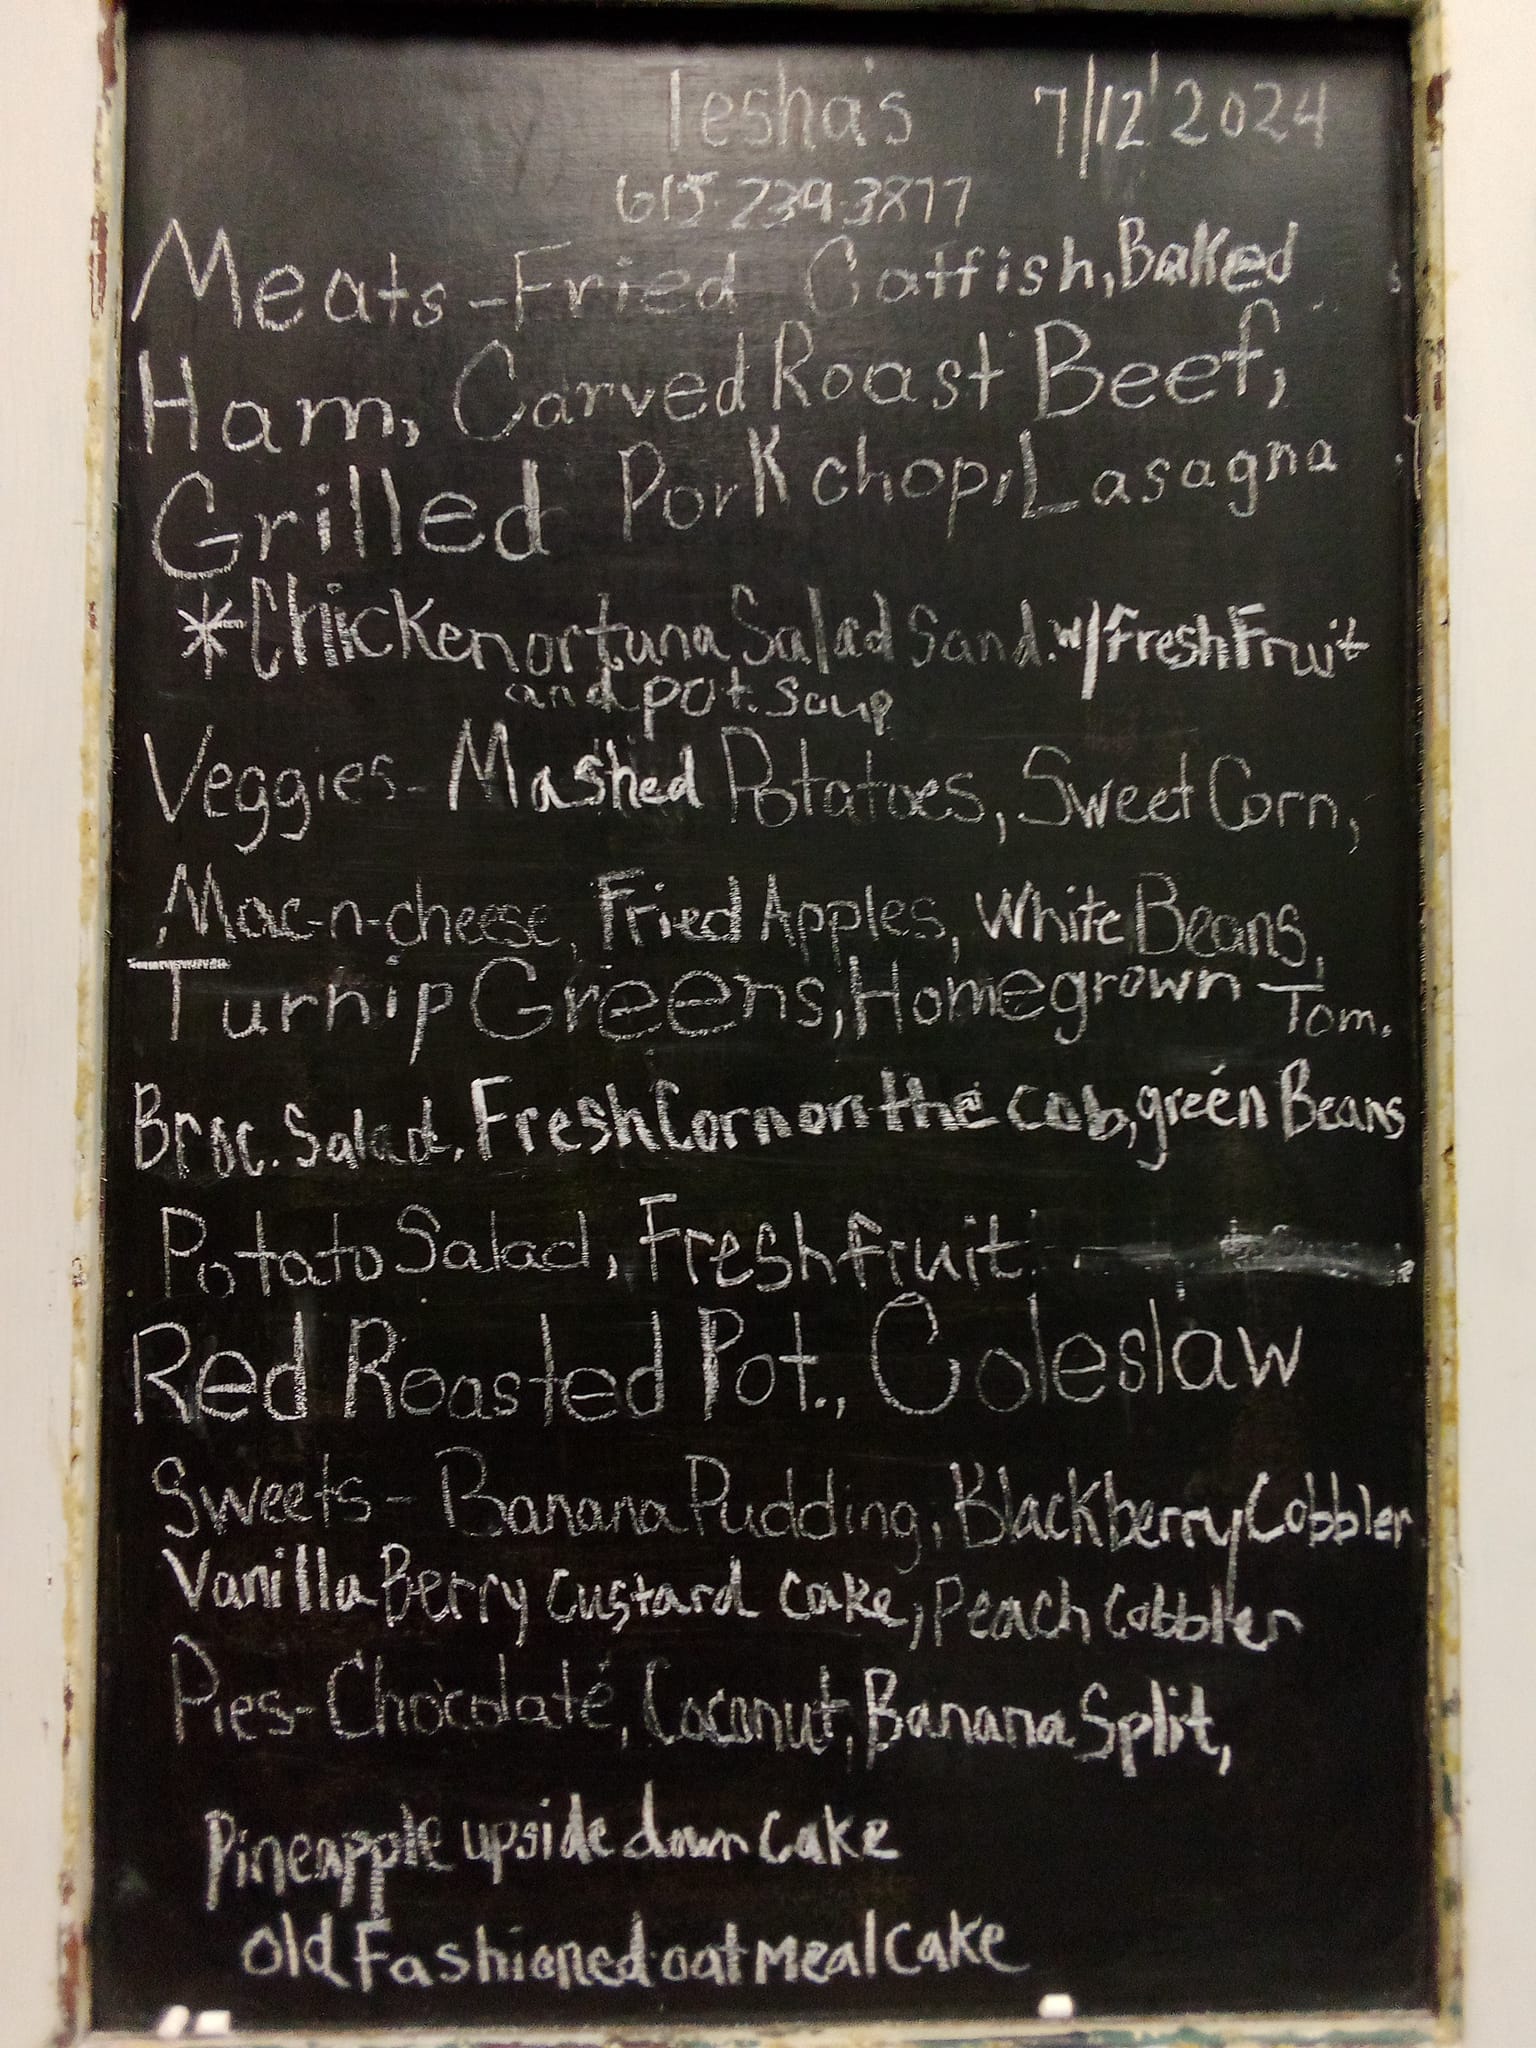 Tesha's 7/12/2024
615-239-3877
Meats - Fried Catfish, Baked
Ham, Carved Roast Beef,
Grilled Pork chop, Lasagna
*Chicken or tuna Salad Sand. w/ Fresh Fruit
and pot. soup
Veggies - Mashed Potatoes, Sweet Corn,
Mac-n-cheese, Fried Apples, White Beans,
Turnip Greens, Homegrown Tom.
Broc. Salad, Fresh Corn on the cob, green Beans
Potato Salad, Fresh fruit
Red Roasted Pot., Coleslaw
Sweets - Banana Pudding, Blackberry Cobbler
Vanilla Berry Custard cake, Peach Cobbler
Pies - Chocolate, Coconut, Banana Split,
Pineapple upside down cake
Old Fashioned oatmeal cake